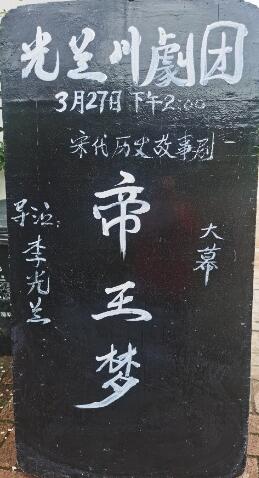 光兰川劇团
3月27日下午2:00
宋代历史故事剧
帝王梦
大幕
导演：李光兰